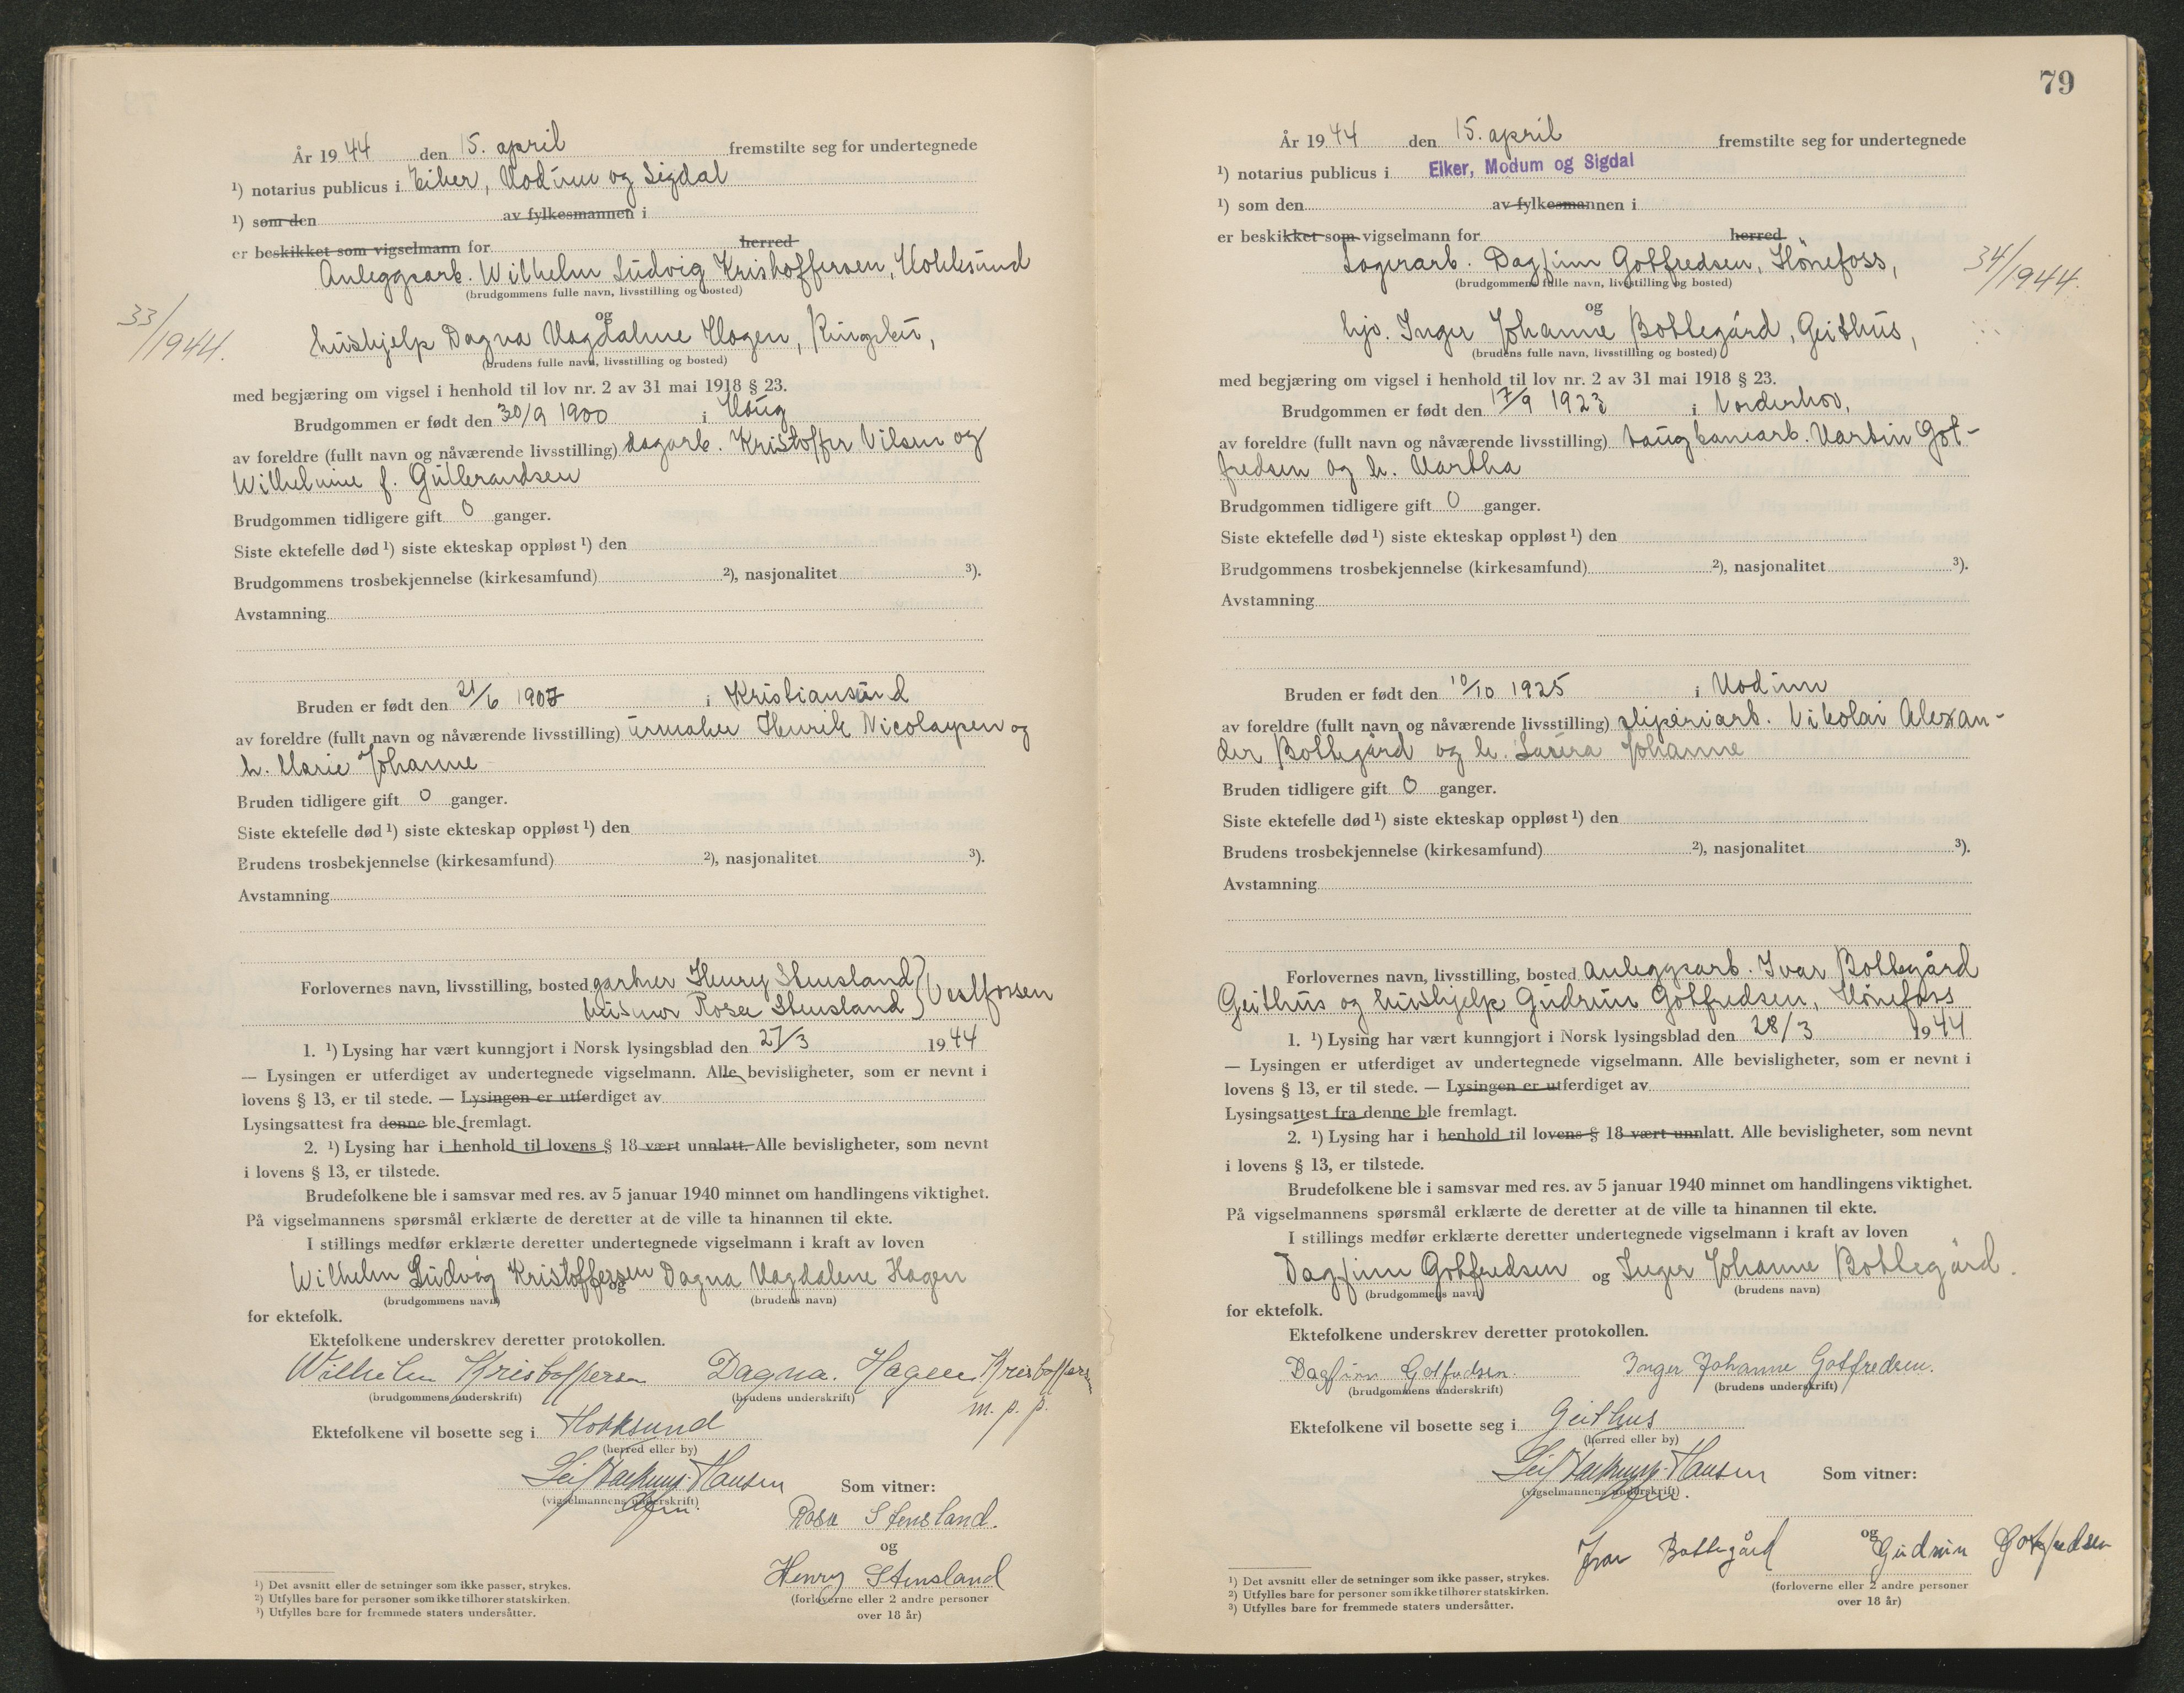 År 1944 den 15. april fremstilte seg for undertegnede
¹) notarius publicus i Eiker, Modum og Sigdal
¹) som den av fylkesmannen i
er beskikket som vigselmann for herred
Anleggsarb. Wilhelm Ludvig Kristoffersen, Hokksund
(brudgommens fulle navn, livsstilling og bosted)
33/1944.
og
hushjelp Dagna Magdalene Hagen, Ringsker,
(brudens fulle navn, livsstilling og bosted)
med begjæring om vigsel i henhold til lov nr. 2 av 31 mai 1918 § 23.
Brudgommen er født den 30/9 1900 i Haug
av foreldre (fullt navn og nåværende livsstilling) dagarb. Kristoffer Nilsen og
Wilhelmine f. Gulbrandsen
Brudgommen tidligere gift 0 ganger.
Siste ektefelle død ¹) siste ekteskap oppløst ¹) den
Brudgommens trosbekjennelse (kirkesamfund) ²), nasjonalitet ³).
Avstamning
Bruden er født den 21/6 1907 i Kristiansund
av foreldre (fullt navn og nåværende livsstilling) urmaker Henrik Nicolaysen og
h. Marie Johanne
Bruden tidligere gift 0 ganger.
Siste ektefelle død ¹) siste ekteskap oppløst ¹) den
Brudens trosbekjennelse (kirkesamfund) ²), nasjonalitet ³).
Avstamning
Forlovernes navn, livsstilling, bosted gartner Henry Stensland } Vestfossen
husmor Rosa Stensland
1. ¹) Lysing har vært kunngjort i Norsk lysingsblad den 27/3 1944
— Lysingen er utferdiget av undertegnede vigselmann. Alle bevisligheter, som er nevnt i
lovens § 13, er til stede. — Lysingen er utferdiget av
Lysingsattest fra denne ble fremlagt.
2. ¹) Lysing har i henhold til lovens § 18 vært unnlatt. Alle bevisligheter, som nevnt
i lovens § 13, er tilstede.
Brudefolkene ble i samsvar med res. av 5 januar 1940 minnet om handlingens viktighet.
På vigselmannens spørsmål erklærte de deretter at de ville ta hinannen til ekte.
I stillings medfør erklærte deretter undertegnede vigselmann i kraft av loven
Wilhelm Ludvig Kristoffersen og Dagna Magdalene Hagen
(brudgommens navn) (brudens navn)
for ektefolk.
Ektefolkene underskrev deretter protokollen.
Wilhelm Kristoffersen Dagna. Hagen Kristoffersen
(brudgommens underskrift) (brudens underskrift) m. p. p.
Ektefolkene vil bosette seg i Hokksund
(herred eller by)
Hansen Som vitner:
(vigselmannens underskrift)
Rosa Stensland.
og
Henry Stensland
(forloverne eller 2 andre personer
over 18 år)
¹) Det avsnitt eller de setninger som ikke passer, strykes.
²) Utfylles bare for personer som ikke tilhører statskirken.
³) Utfylles bare for fremmede staters undersåtter.
79
År 1944 den 15. april fremstilte seg for undertegnede
¹) notarius publicus i Eiker, Modum og Sigdal
¹) som den av fylkesmannen i
er beskikket som vigselmann for herred
Lagerarb. Dagfinn Gotfredsen, Hönefoss,
(brudgommens fulle navn, livsstilling og bosted)
34/1944.
og
hjv. Inger Johanne Bottegård, Geithus,
(brudens fulle navn, livsstilling og bosted)
med begjæring om vigsel i henhold til lov nr. 2 av 31 mai 1918 § 23.
Brudgommen er født den 17/9 1923 i Norderhov,
av foreldre (fullt navn og nåværende livsstilling) taugbanearb. Martin Got-
fredsen og h. Martha
Brudgommen tidligere gift 0 ganger.
Siste ektefelle død ¹) siste ekteskap oppløst ¹) den
Brudgommens trosbekjennelse (kirkesamfund) ²), nasjonalitet ³).
Avstamning
Bruden er født den 10/10 1925 i Modum
av foreldre (fullt navn og nåværende livsstilling) sliperiarb. Nikolai Alexan-
der Bottegård og h. Laura Johanne
Bruden tidligere gift 0 ganger.
Siste ektefelle død ¹) siste ekteskap oppløst ¹) den
Brudens trosbekjennelse (kirkesamfund) ²), nasjonalitet ³).
Avstamning
Forlovernes navn, livsstilling, bosted anleggsarb. Ivar Bottegård
Geithus og hushjelp Gudrun Gotfredsen, Hönefoss
1. ¹) Lysing har vært kunngjort i Norsk lysingsblad den 28/3 1944
— Lysingen er utferdiget av undertegnede vigselmann. Alle bevisligheter, som er nevnt i
lovens § 13, er til stede. — Lysingen er utferdiget av
Lysingsattest fra denne ble fremlagt.
2. ¹) Lysing har i henhold til lovens § 18 vært unnlatt. Alle bevisligheter, som nevnt
i lovens § 13, er tilstede.
Brudefolkene ble i samsvar med res. av 5 januar 1940 minnet om handlingens viktighet.
På vigselmannens spørsmål erklærte de deretter at de ville ta hinannen til ekte.
I stillings medfør erklærte deretter undertegnede vigselmann i kraft av loven
Dagfinn Gotfredsen og Inger Johanne Bottegård.
(brudgommens navn) (brudens navn)
for ektefolk.
Ektefolkene underskrev deretter protokollen.
Dagfinn Gotfredsen. Inger Johanne Gotfredsen.
(brudgommens underskrift) (brudens underskrift)
Ektefolkene vil bosette seg i Geithus
(herred eller by)
Hansen Som vitner:
(vigselmannens underskrift)
Ivar Bottegård og Gudrun Gotfredsen
(forloverne eller 2 andre personer
over 18 år)
¹) Det avsnitt eller de setninger som ikke passer, strykes.
²) Utfylles bare for personer som ikke tilhører statskirken.
³) Utfylles bare for fremmede staters undersåtter.